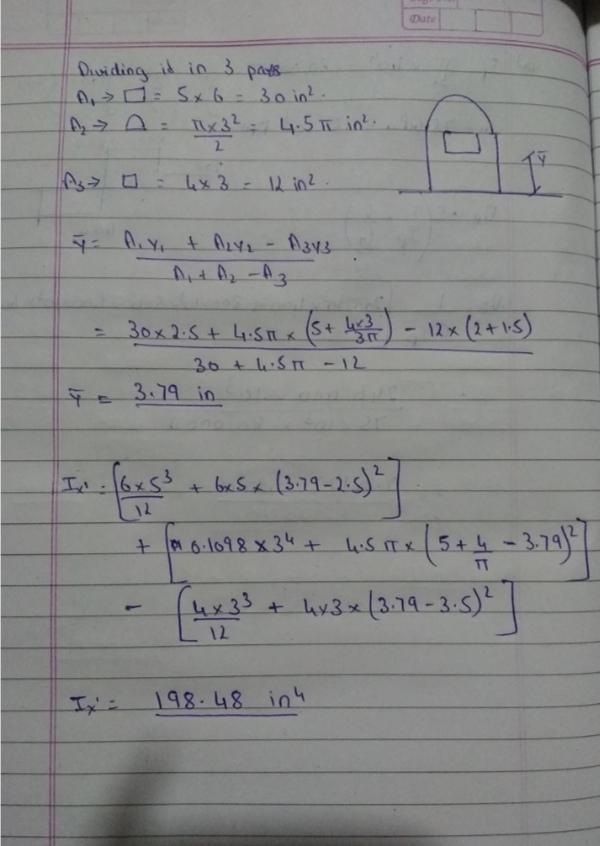 Date
Dividing it in 3 parts
A₁ → □ = 5 x 6 = 30 in².
A₂ → ⌓ = π x 3²/2 = 4.5 π in².
A₃ → □ = 4 x 3 - 12 in².
Ȳ
Ȳ = A₁Y₁ + A₂Y₂ - A₃Y₃ / A₁ + A₂ - A₃ .
= 30 x 2.5 + 4.5π x (5 + 4x3/3π) - 12 x (2 + 1.5) / 30 + 4.5π - 12
Ȳ = 3.79 in
Ix' = [6 x 5³/12 + 6x5 x (3.79 - 2.5)²]
+ [0.1098 x 3⁴ + 4.5 π x (5 + 4/π - 3.79)²]
- [4 x 3³/12 + 4x3 x (3.79 - 3.5)²]
Ix' = 198.48 in⁴